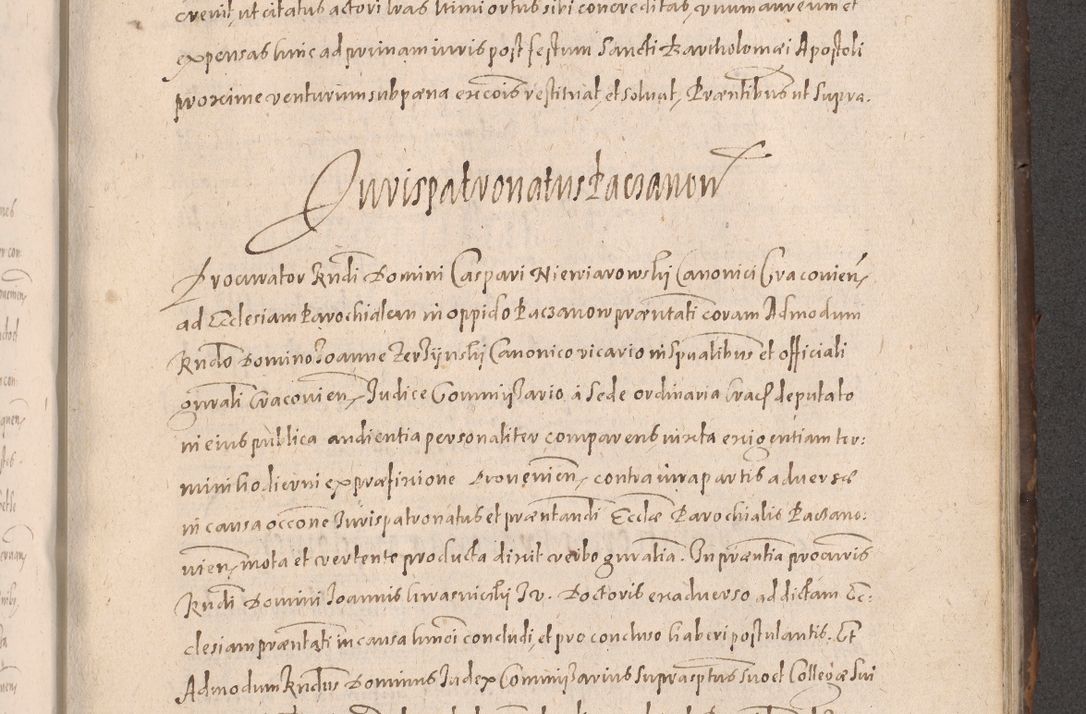 crevit, ut citatus actori lras huiusmodi ortus sibi concreditas, unum aureum et
expensas hinc ad primam iuris post festum Sancti Bartholomæi Apostoli
proxime venturum sub pæna excõis restituat, et soluat, Præntibus ut Supra.
Iurispatronatus Paczanow
Procurator Rndi Domini Caspari Niewiarowskj Canonici Cracouien,
ad Ecclesiam Parochialem in oppido Paczanow præntati coram Admodum
Rndo Domino Ioanne Canonico vicario in Spualibus et officiali
gnrali Cracouien, Iudice Commissario à Sede ordinaria Crac deputato
in eius publica audientia personaliter comparens, iuxta exigentiam ter:
mini hodierni ex præfixione Prouenien, contra iura partis aduersæ
in causa occõne Iurispatronatus et præntandi Ecclæ Parochialis Paczano:
uien, mota et vertente producta dixit verbo gnralia. In præntia procuris
Rndi Domini Ioannis I. V. Doctoris ex aduerso ad dictam Ec:
clesiam præntati in causa hmõi concludi, et pro concluso haberi postulantis. Et
Admodum Rndus Dominus Iudex Commissarius supraspus suoq Collegæ Sui